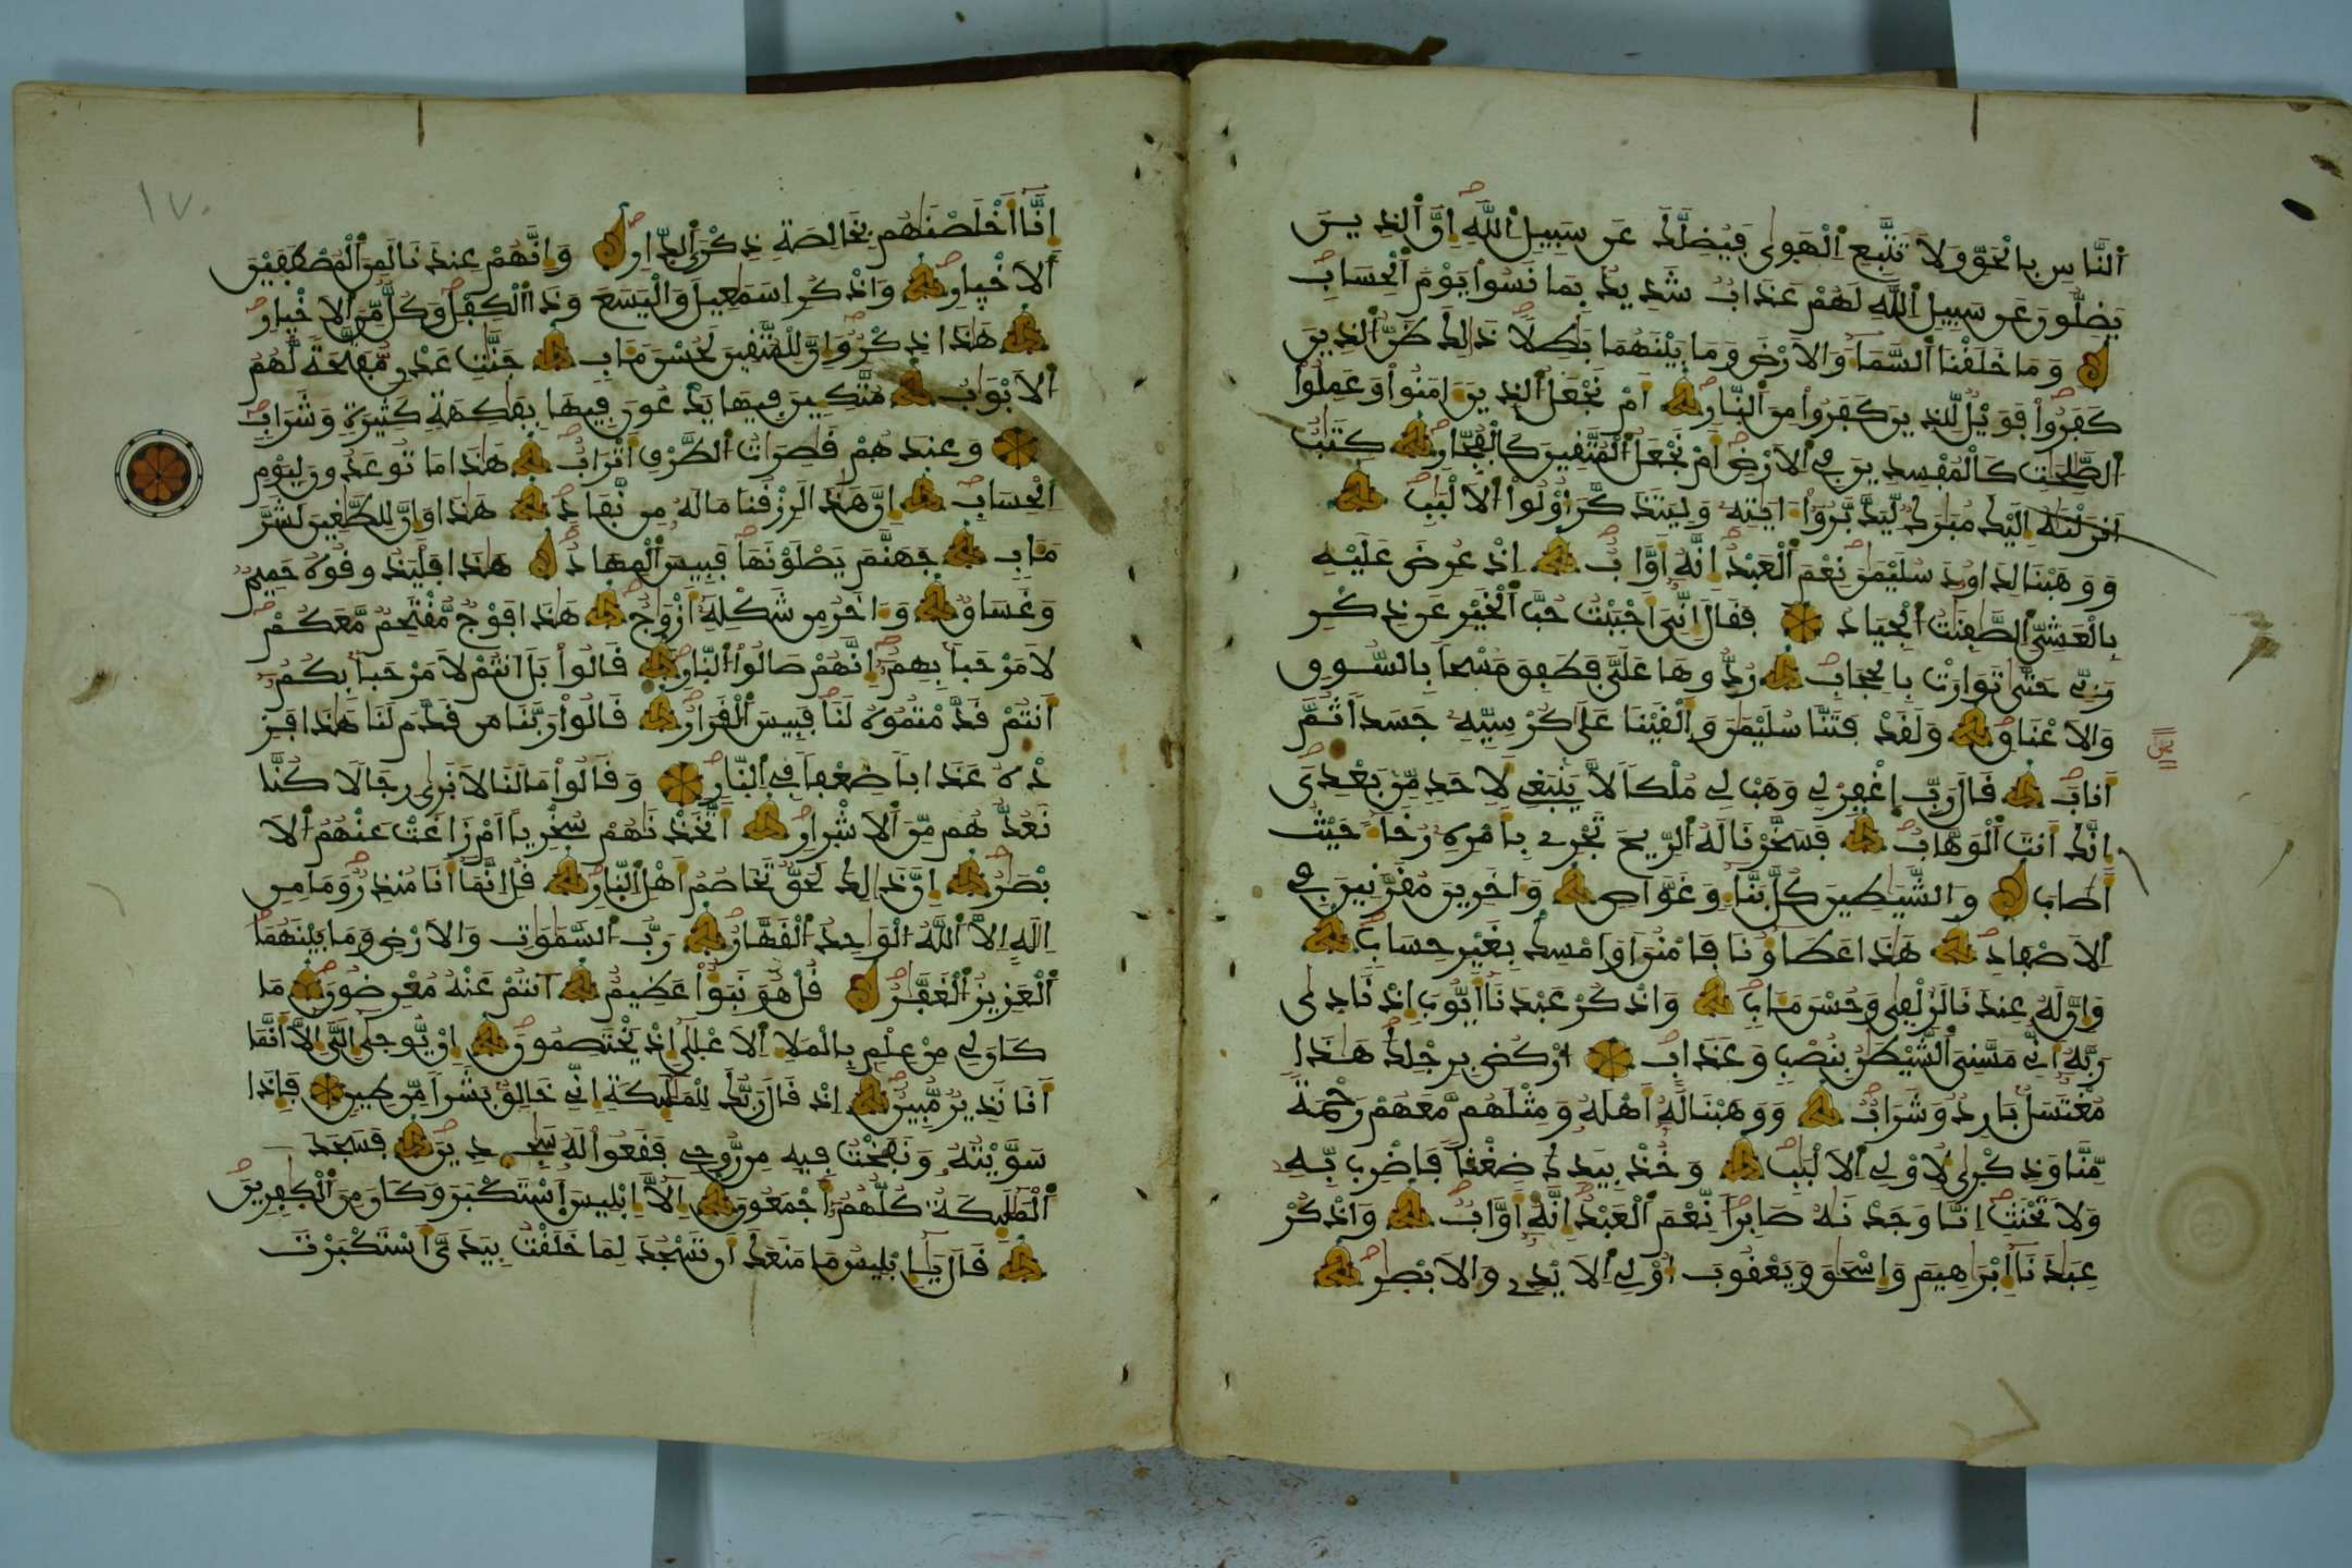 اَ۬لنَّاسِ بِالْحَقِّ وَلَا تَتَّبِعِ اِ۬لْهَوٜىٰ فَيُضِلَّكَ عَن سَبِيلِ اِ۬للَّهِ إِنَّ اَ۬لذِينَ
يَضِلُّونَ عَن سَبِيلِ اِ۬للَّهِ لَهُمْ عَذَابٌ شَدِيدٌ بِمَا نَسُوا۟ يَوْمَ اَ۬لْحِسَابِ
وَمَا خَلَقْنَا اَ۬لسَّمَآءَ وَالَارْضَ وَمَا بَيْنَهُمَا بَٰطِلًا ذَٰلِكَ ظَنُّ اُ۬لذِينَ
كَفَرُوا۟ فَوَيْلٌ لِّلذِينَ كَفَرُوا۟ مِنَ اَ۬لنّ۪ارِ أَمْ نَجْعَلُ اُ۬لذِينَ ءَامَنُوا۟ وَعَمِلُوا۟
اُ۬لصَّٰلِحَٰتِ كَالْمُفْسِدِينَ فِے اِ۬لَارْضِ أَمْ نَجْعَلُ اُ۬لْمُتَّقِينَ كَالْفُجّ۪ارِ كِتَٰبٌ
اَنزَلْنَٰهُ إِلَيْكَ مُبَٰرَكٌ لِّيَدَّبَّرُوٓا۟ ءَايَٰتِهِۦ وَلِيَتَذَكَّرَ أُو۟لُوا۟ اُ۬لَالْبَٰبِ
وَوَهَبْنَا لِدَاوُۥدَ سُلَيْمَٰنَ نِعْمَ اَ۬لْعَبْدُ إِنَّهُۥٓ أَوَّابٌ إِذْ عُرِضَ عَلَيْهِ
بِالْعَشِيِّ اِ۬لصَّٰفِنَٰتُ اُ۬لْجِيَادُ فَقَالَ إِنِّيَ أَحْبَبْتُ حُبَّ اَ۬لْخَيْرِ عَن ذِكْرِ
رَبِّے حَتَّىٰ تَوَارَتْ بِالْحِجَابِ رُدُّوهَا عَلَيَّ فَطَفِقَ مَسْحاً بِالسُّوقِ
وَالَاعْنَاقِ وَلَقَدْ فَتَنَّا سُلَيْمَٰنَ وَأَلْقَيْنَا عَلَىٰ كُرْسِيِّهِۦ جَسَداً ثُمَّ
أَنَابَ قَالَ رَبِّ اِ۪غْفِرْ لِے وَهَبْ لِے مُلْكاً لَّا يَنۢبَغِے لِأَحَدٍ مِّنۢ بَعْدِيَ
إِنَّكَ أَنتَ اَ۬لْوَهَّابُ فَسَخَّرْنَا لَهُ اُ۬لرِّيحَ تَجْرِے بِأَمْرِهِۦ رُخَآءً حَيْثُ
أَصَابَ وَالشَّيَٰطِينَ كُلَّ بَنَّآءٍ وَغَوَّاصٍ وَءَاخَرِينَ مُقَرَّنِينَ فِے
اِ۬لَاصْفَادِ هَٰذَا عَطَآؤُنَا فَامْنُنَ اَوَ اَمْسِكْ بِغَيْرِ حِسَابٍ
وَإِنَّ لَهُۥ عِندَنَا لَزُلْفٜىٰ وَحُسْنَ مَـَٔابٍ وَاذْكُرْ عَبْدَنَآ أَيُّوبَ إِذْ نَادٜىٰ
رَبَّهُۥٓ أَنِّے مَسَّنِيَ اَ۬لشَّيْطَٰنُ بِنُصْبٍ وَعَذَابٍ اُ۟رْكُضْ بِرِجْلِكَ هَٰذَا
مُغْتَسَلُۢ بَارِدٌ وَشَرَابٌ وَوَهَبْنَا لَهُۥٓ أَهْلَهُۥ وَمِثْلَهُم مَّعَهُمْ رَحْمَةً
مِّنَّا وَذِكْر۪ىٰ لِأُو۟لِے اِ۬لَالْبَٰبِ وَخُذْ بِيَدِكَ ضِغْثاً فَاضْرِب بِّهِۦ
وَلَا تَحْنَثِ اِنَّا وَجَدْنَٰهُ صَابِراً نِّعْمَ اَ۬لْعَبْدُ إِنَّهُۥٓ أَوَّابٌ وَاذْكُرْ
عِبَٰدَنَآ إِبْرَٰهِيمَ وَإِسْحَٰقَ وَيَعْقُوبَ أُو۟لِے اِ۬لَايْدِے وَالَابْصٰ۪رِ
١٧٠
إِنَّآ أَخْلَصْنَٰهُم بِخَالِصَةِ ذِكْرَى اَ۬لدّ۪ارِ وَإِنَّهُمْ عِندَنَا لَمِنَ اَ۬لْمُصْطَفَيْنَ
اَ۬لَاخْي۪ارِ وَاذْكُرِ اِسْمَٰعِيلَ وَالْيَسَعَ وَذَا اَ۬لْكِفْلِ وَكُلٌّ مِّنَ اَ۬لَاخْي۪ارِ
هَٰذَا ذِكْرٌ وَإِنَّ لِلْمُتَّقِينَ لَحُسْنَ مَـَٔابٍ جَنَّٰتِ عَدْنٍ مُّفَتَّحَةً لَّهُمُ
اُ۬لَابْوَٰبُ مُتَّكِـِٕينَ فِيهَا يَدْعُونَ فِيهَا بِفَٰكِهَةٍ كَثِيرَةٍ وَشَرَابٍ
وَعِندَهُمْ قَٰصِرَٰتُ اُ۬لطَّرْفِ أَتْرَابٌ هَٰذَا مَا تُوعَدُونَ لِيَوْمِ
اِ۬لْحِسَابِ إِنَّ هَٰذَا لَرِزْقُنَا مَا لَهُۥ مِن نَّفَادٍ هَٰذَا وَإِنَّ لِلطَّٰغِينَ لَشَرَّ
مَـَٔابٍ جَهَنَّمَ يَصْلَوْنَهَا فَبِيسَ اَ۬لْمِهَادُ هَٰذَا فَلْيَذُوقُوهُ حَمِيمٌ
وَغَسَاقٌ وَءَاخَرُ مِن شَكْلِهِۦٓ أَزْوَٰجٌ هَٰذَا فَوْجٌ مُّقْتَحِمٌ مَّعَكُمْ
لَا مَرْحَباَۢ بِهِمُۥٓ إِنَّهُمْ صَالُوا۟ اُ۬لنّ۪ارِ قَالُوا۟ بَلَ اَنتُمْ لَا مَرْحَباَۢ بِكُمُۥٓ
أَنتُمْ قَدَّمْتُمُوهُ لَنَا فَبِيسَ اَ۬لْقَرَارُ قَالُوا۟ رَبَّنَا مَن قَدَّمَ لَنَا هَٰذَا فَزِ
دْهُ عَذَاباً ضِعْفاً فِے اِ۬لنّ۪ارِ وَقَالُوا۟ مَا لَنَا لَا نَر۪ىٰ رِجَالًا كُنَّا
نَعُدُّهُم مِّنَ اَ۬لَاشْر۪ارِ أَتَّخَذْنَٰهُمْ سُخْرِيّاً اَمْ زَاغَتْ عَنْهُمُ اُ۬لَا
بْصَٰرُ إِنَّ ذَٰلِكَ لَحَقٌّ تَخَاصُمُ أَهْلِ اِ۬لنّ۪ارِ قُلِ اِنَّمَآ أَنَا مُنذِرٌ وَمَا مِنِ
اِلَٰهٍ اِلَّا اَ۬للَّهُ اُ۬لْوَٰحِدُ اُ۬لْقَهَّارُ رَبُّ اُ۬لسَّمَٰوَٰتِ وَالَارْضِ وَمَا بَيْنَهُمَا
اَ۬لْعَزِيزُ اُ۬لْغَفَّٰرُ قُلْ هُوَ نَبَؤٌا۟ عَظِيمٌ اَنتُمْ عَنْهُ مُعْرِضُونَ مَا
كَانَ لِے مِنْ عِلْمٍ بِالْمَلَإِ اِ۬لَاعْلَىٰٓ إِذْ يَخْتَصِمُونَ إِنْ يُّوحَىٰٓ إِلَيَّ إِلَّآ أَنَّمَآ
أَنَا نَذِيرٌ مُّبِينٌ إِذْ قَالَ رَبُّكَ لِلْمَلَٰٓئِكَةِ إِنِّے خَٰلِقُۢ بَشَراً مِّن طِينٍ فَإِذَا
سَوَّيْتُهُۥ وَنَفَخْتُ فِيهِ مِن رُّوحِے فَقَعُوا۟ لَهُۥ سَٰجِدِينَ فَسَجَدَ
اَ۬لْمَلَٰٓئِكَةُ كُلُّهُمُۥٓ أَجْمَعُونَ إِلَّآ إِبْلِيسَ اَ۪سْتَكْبَرَ وَكَانَ مِنَ اَ۬لْكٰ۪فِرِينَ
قَالَ يَٰٓإِبْلِيسُ مَا مَنَعَكَ أَن تَسْجُدَ لِمَا خَلَقْتُ بِيَدَيَّ أَسْتَكْبَرْتَ